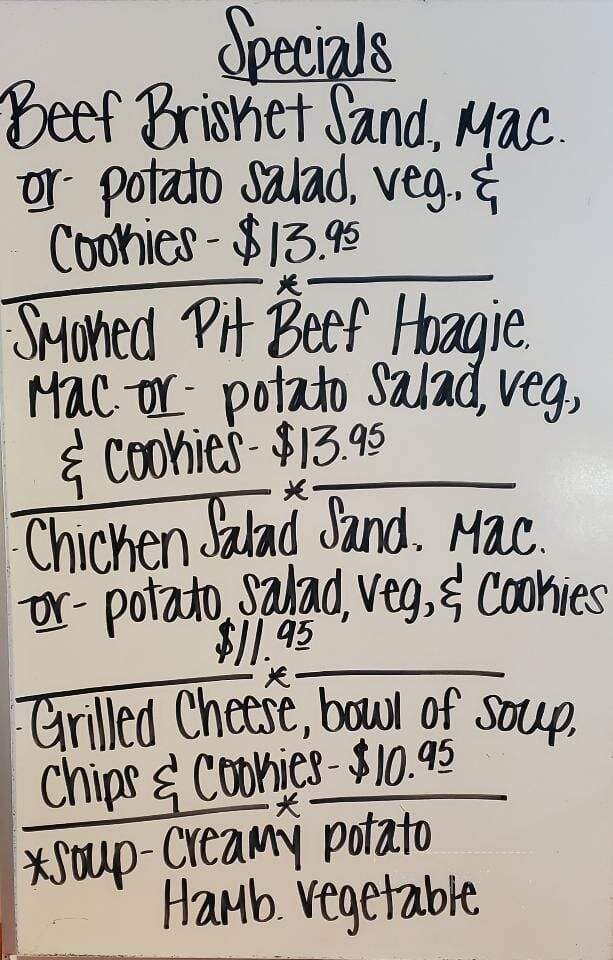 Specials
Beef Brisket Sand., Mac.
or - potato salad, veg., &
Cookies - $13.95
*
- Smoked Pit Beef Hoagie,
Mac. or - potato salad, veg.,
& cookies - $13.95
*
- Chicken Salad Sand. Mac.
or - potato salad, veg., & cookies
$11.95
*
- Grilled Cheese, bowl of soup,
chips & cookies - $10.95
*
*soup - creamy potato
Hamb. vegetable